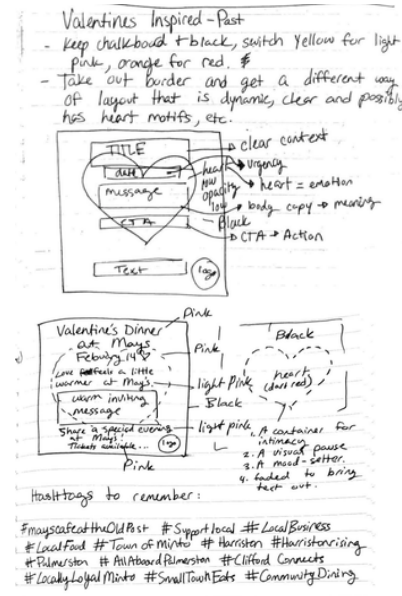 Valentines Inspired - Post
- Keep chalkboad + black, switch Yellow for light
pink, orange for red.
- Take out border and get a different way
of layout that is dynamic, clear and possibly
has heart motifs, etc.
TITLE
date
message
CTA
Text
logo
heart
low
opacity
low
Black
clear context
urgency
heart = emotion
body copy → meaning
CTA → Action
Pink
Valentine's Dinner
at Mays
Febuary 14
Love feels a little
warmer at May's.
warm inviting
message
Share a special evening
at May's!
Tickets available...
logo
Pink
Pink
light Pink
Black
light pink
Black
heart
(dark red)
1. A container for
intimacy
2. A visual pause
3. A mood-setter.
4. faded to bring
text out.
Hashtags to remember:
#mayscafeattheOldPost #Supportlocal #LocalBusiness
#LocalFood #Town of Minto #Harriston #Harristonrising
#Palmerston #AllAboardPalmerston #Clifford Connects
#LocallyLoyalMinto #SmallTownEats #CommunityDining